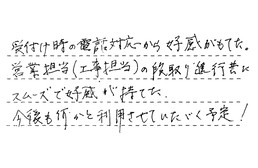 受付け時の電話対応から好感がもてた。
営業担当(工事担当)の段取り進行共に
スムーズで好感が持てた。
今後も何かと利用させていただく予定!